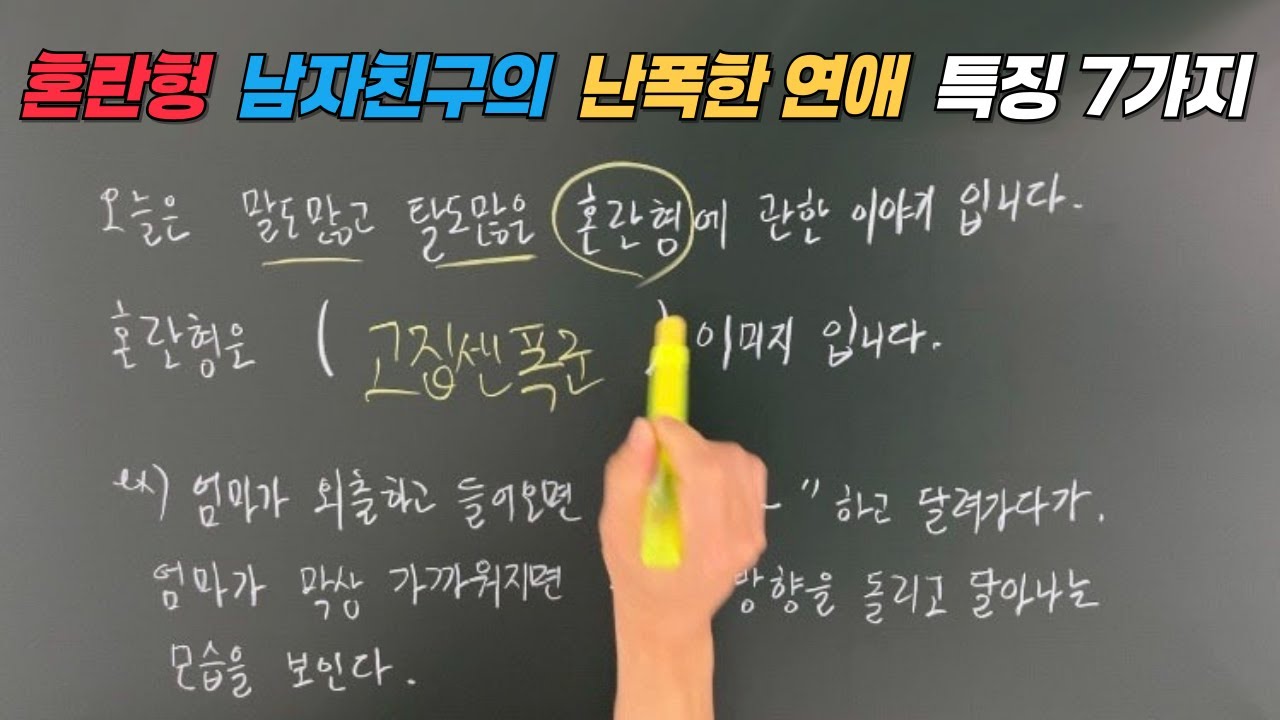 혼란형 남자친구의 난폭한 연애 특징 7가지
오늘은 말도많고 탈도많은 혼란형에 관한 이야기 입니다.
혼란형은 ( 고집센폭군 ) 이미지 입니다.
ex) 엄마가 외출하고 들어오면 ~" 하고 달려가다가.
엄마가 막상 가까워지면 방향을 돌리고 달아나는
모습을 보인다.